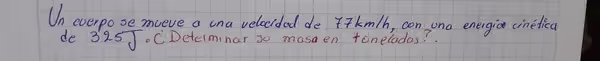 Un cuerpo se mueve a una velocidad de 77km/h, con una energía cinética
de 325J. ¿Determinar su masa en toneladas?.